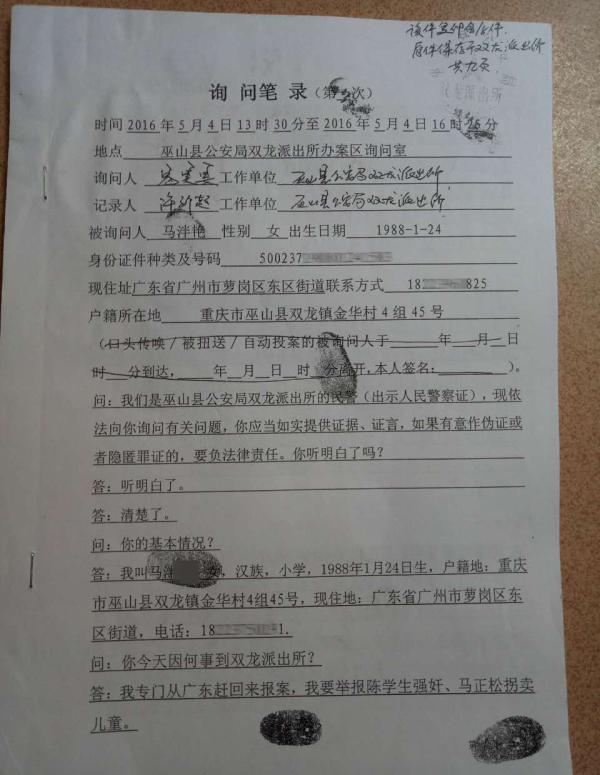 该件复印自原件
原件保存于双龙派出所
共九页
双龙派出所
询 问 笔 录（第 次）
时间 2016 年 5 月 4 日 13 时 30 分至 2016 年 5 月 4 日 16 时 分
地点 巫山县公安局双龙派出所办案区询问室
询问人 工作单位 巫山县公安局双龙派出所
记录人 工作单位 巫山县公安局双龙派出所
被询问人 马泮艳 性别 女 出生日期 1988-1-24
身份证件种类及号码 500237
现住址广东省广州市萝岗区东区街道联系方式 18 825
户籍所在地 重庆市巫山县双龙镇金华村 4 组 45 号
（口头传唤／被扭送／自动投案的被询问人于 年 月 日
时 分到达， 年 月 日 时 分离开，本人签名： ）。
问：我们是巫山县公安局双龙派出所的民警（出示人民警察证），现依
法向你询问有关问题，你应当如实提供证据、证言，如果有意作伪证或
者隐匿罪证的，要负法律责任。你听明白了吗？
答：听明白了。
答：清楚了。
问：你的基本情况？
答：我叫马泮 女，汉族，小学，1988年1月24日生，户籍地：重庆
市巫山县双龙镇金华村4组45号，现住地：广东省广州市萝岗区东
区街道，电话：18 1.
问：你今天因何事到双龙派出所？
答：我专门从广东赶回来报案，我要举报陈学生强奸、马正松拐卖
儿童。